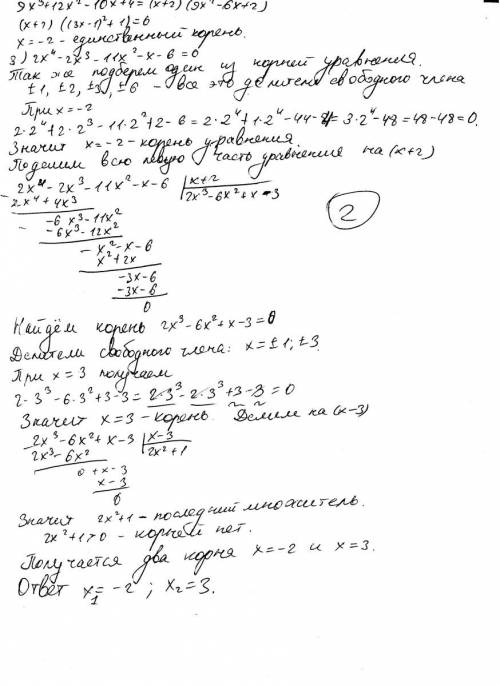 9x³+12x²-10x+4=(x+2)(9x²-6x+2)
(x+2)((3x-1)²+1)=0
x=-2 - единственный корень.
3) 2x⁴-2x³-11x²-x-6=0
Так же подберем один из корней уравнения.
±1, ±2, ±3, ±6 - все это делители свободного члена
При x=-2
2·2⁴+2·2³-11·2²+2-6=2·2⁴+1·2⁴-44-4=3·2⁴-48=48-48=0.
Значит x=-2-корень уравнения.
Поделим всю левую часть уравнения на (x+2)
2x⁴-2x³-11x²-x-6 | x+2
2x⁴+4x³ 2x³-6x²+x-3
-6x³-11x²
-6x³-12x²
x²-x-6
x²+2x
-3x-6
-3x-6
0
2
Найдём корень 2x³-6x²+x-3=0
Делители свободного члена: x=±1; ±3.
При x=3 получаем
2·3³-6·3²+3-3=2·3³-2·3³+3-3=0
Значит x=3-корень. Делим на (x-3)
2x³-6x²+x-3 | x-3
2x³-6x² 2x²+1
0+x-3
x-3
0
Значит 2x²+1-последний множитель.
2x²+1>0 - корней нет.
Получается два корня x=-2 и x=3.
Ответ x₁=-2; x₂=3.